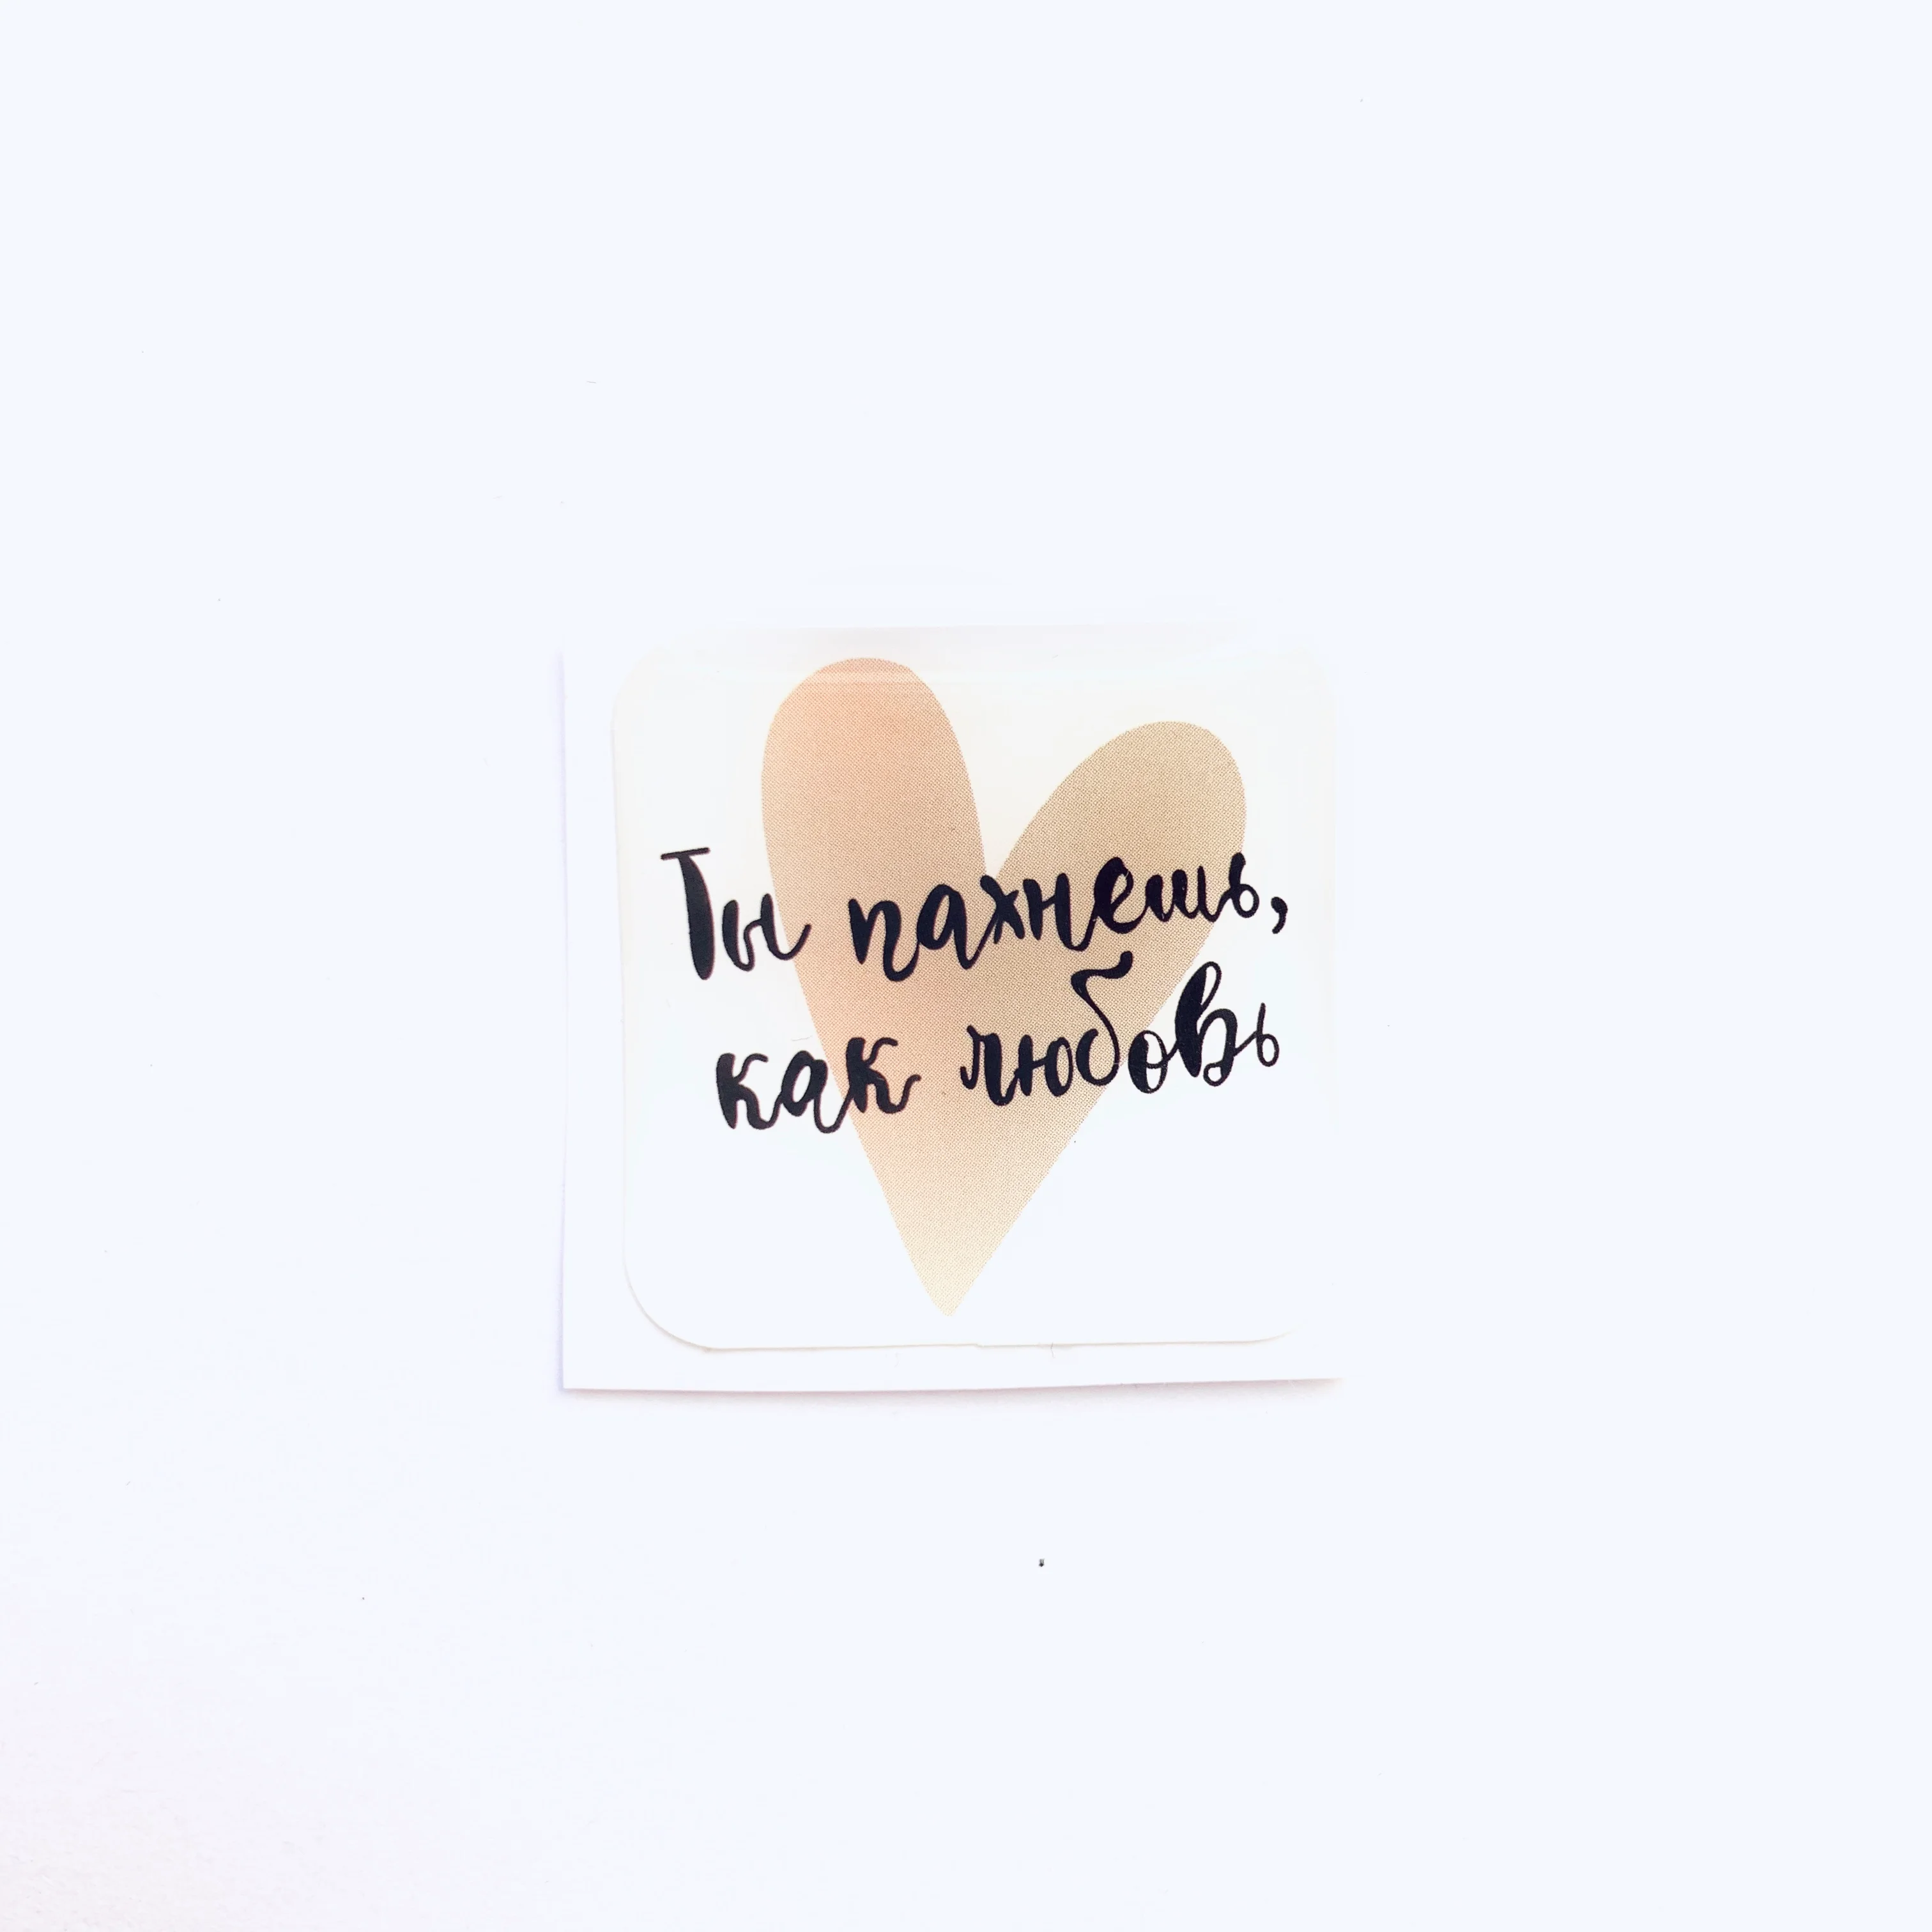 Ты пахнешь,
как любовь